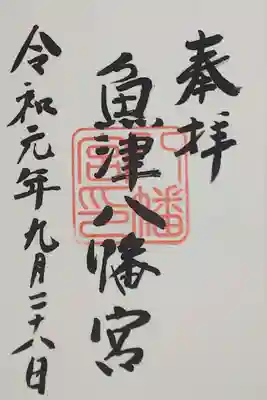 奉拝
魚津八幡宮
令和元年九月二十八日